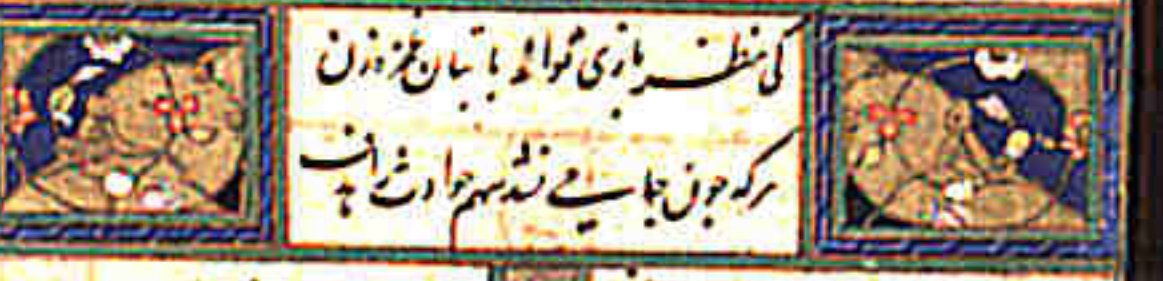 کی نظر بازی تواند با بتان غمزه زن
هر که چون جامی نشد سهم حوادث را هدف